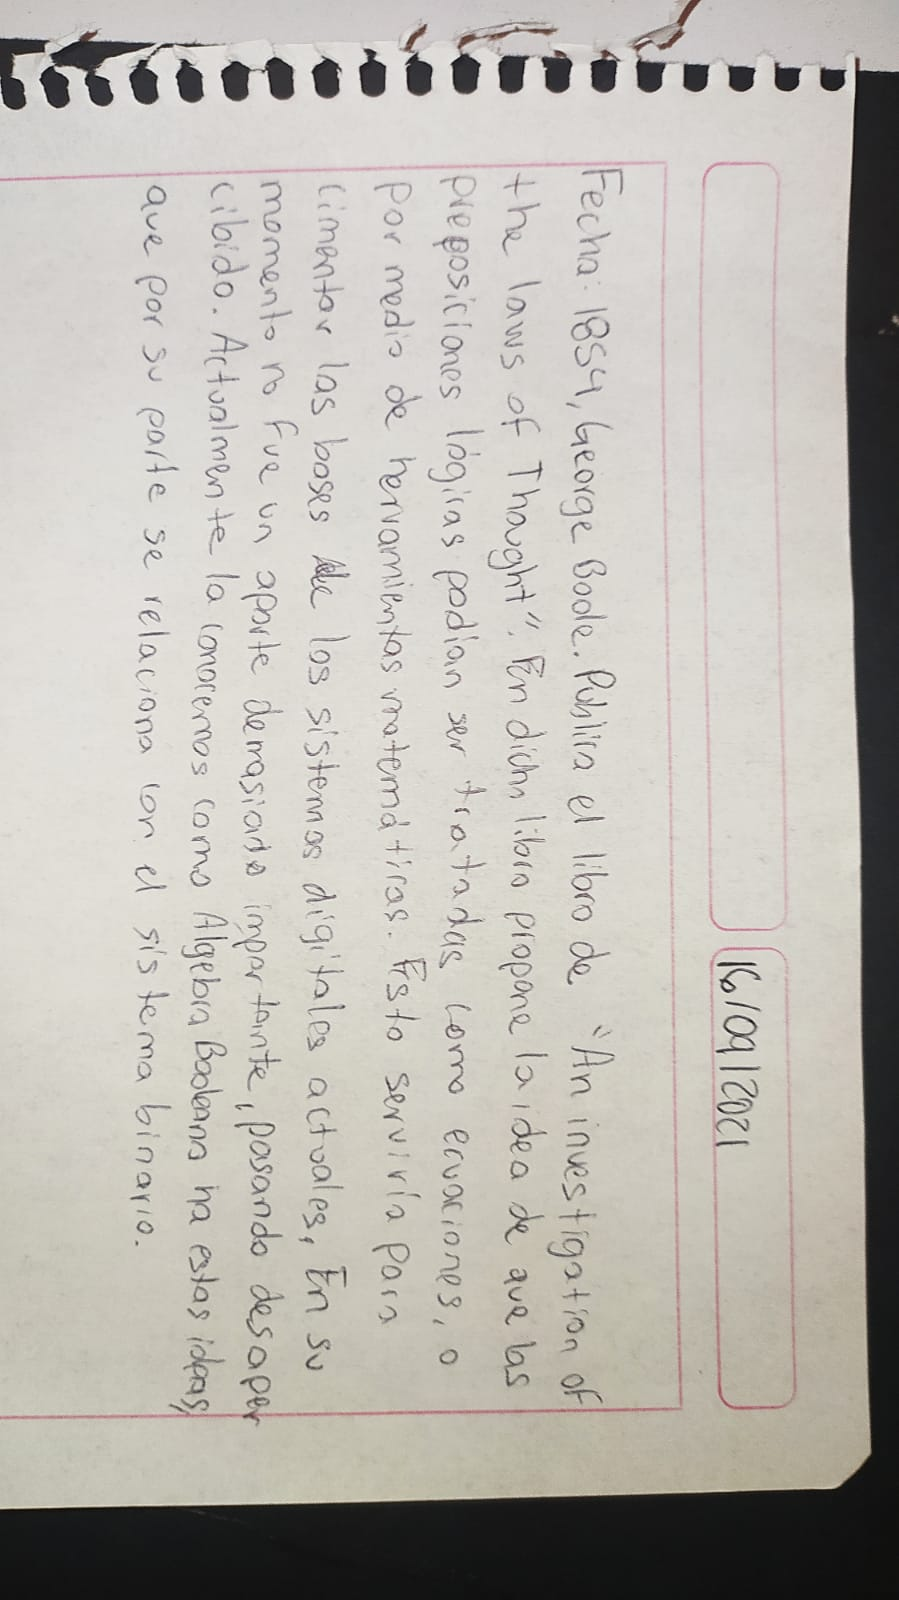 16/09/2021
Fecha: 1854, George Boole. Publica el libro de "An investigation of
the laws of Thought". En dicho libro propone la idea de que las
preposiciones lógicas podían ser tratadas como ecuaciones, o
por medio de herramientas matemáticas. Esto serviría para
cimentar las bases de los sistemas digitales actuales, En su
momento no fue un aporte demasiado importante, pasando desaper
cibido. Actualmente la conocemos como Algebra Booleana ha estas ideas,
que por su parte se relaciona con el sistema binario.